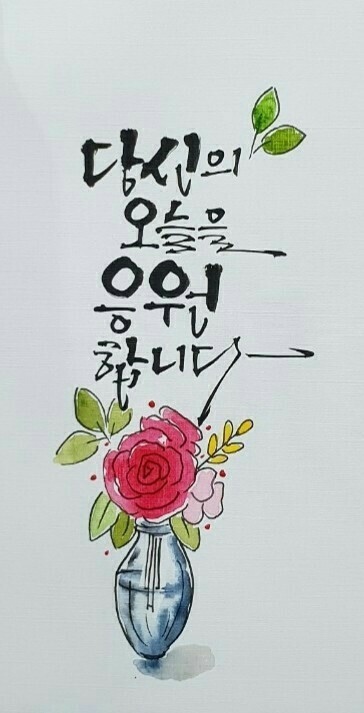 당신의
오늘을
응원
합니다